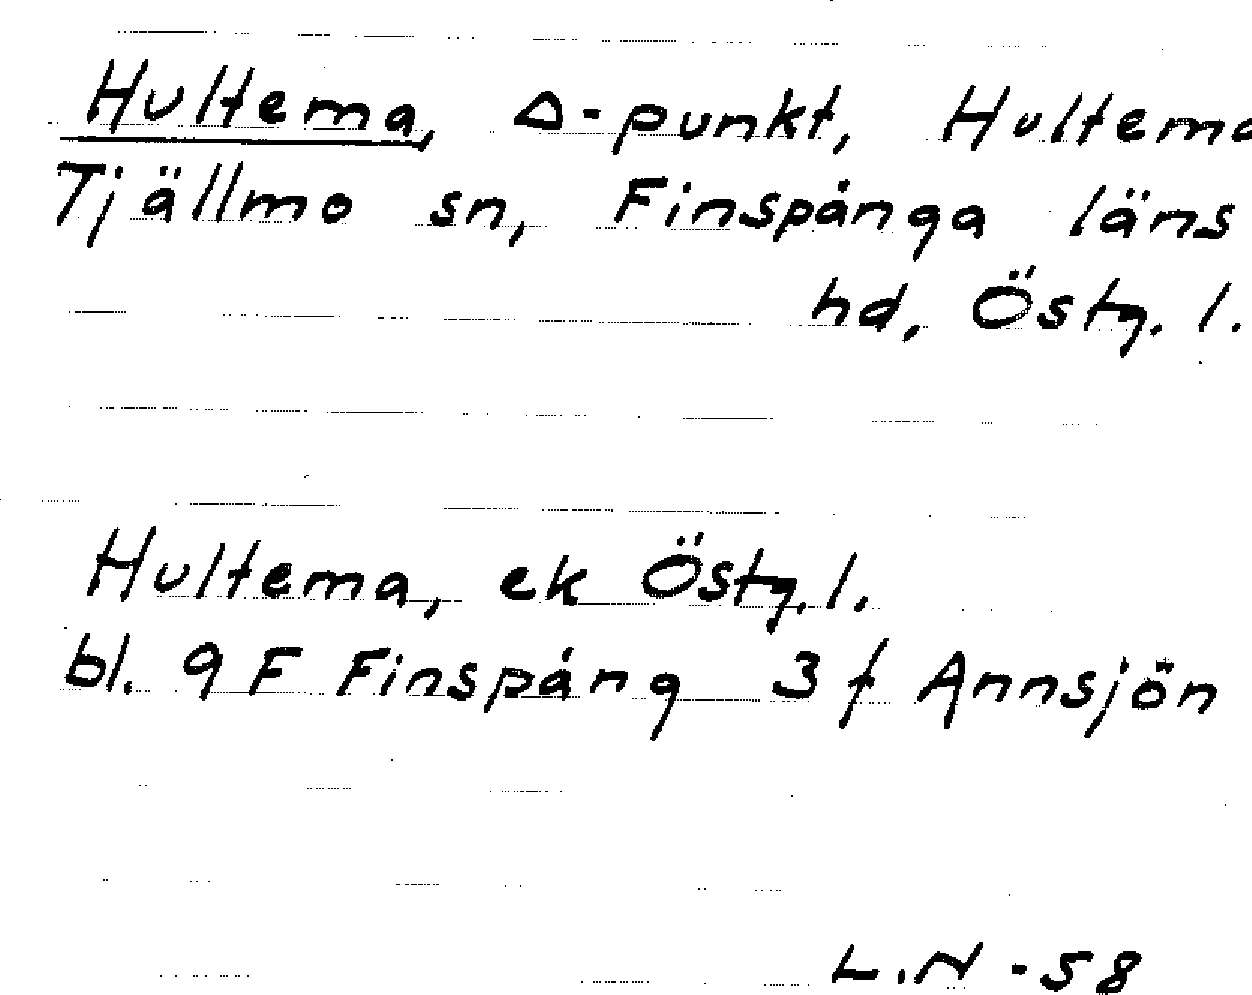 Hultema, Δ-punkt, Hultema
Tjällmo sn, Finspånga läns
hd, Östg. l.
Hultema, ek Östg. l.
bl. 9 F Finspång 3 f Annsjön
L.N - 58